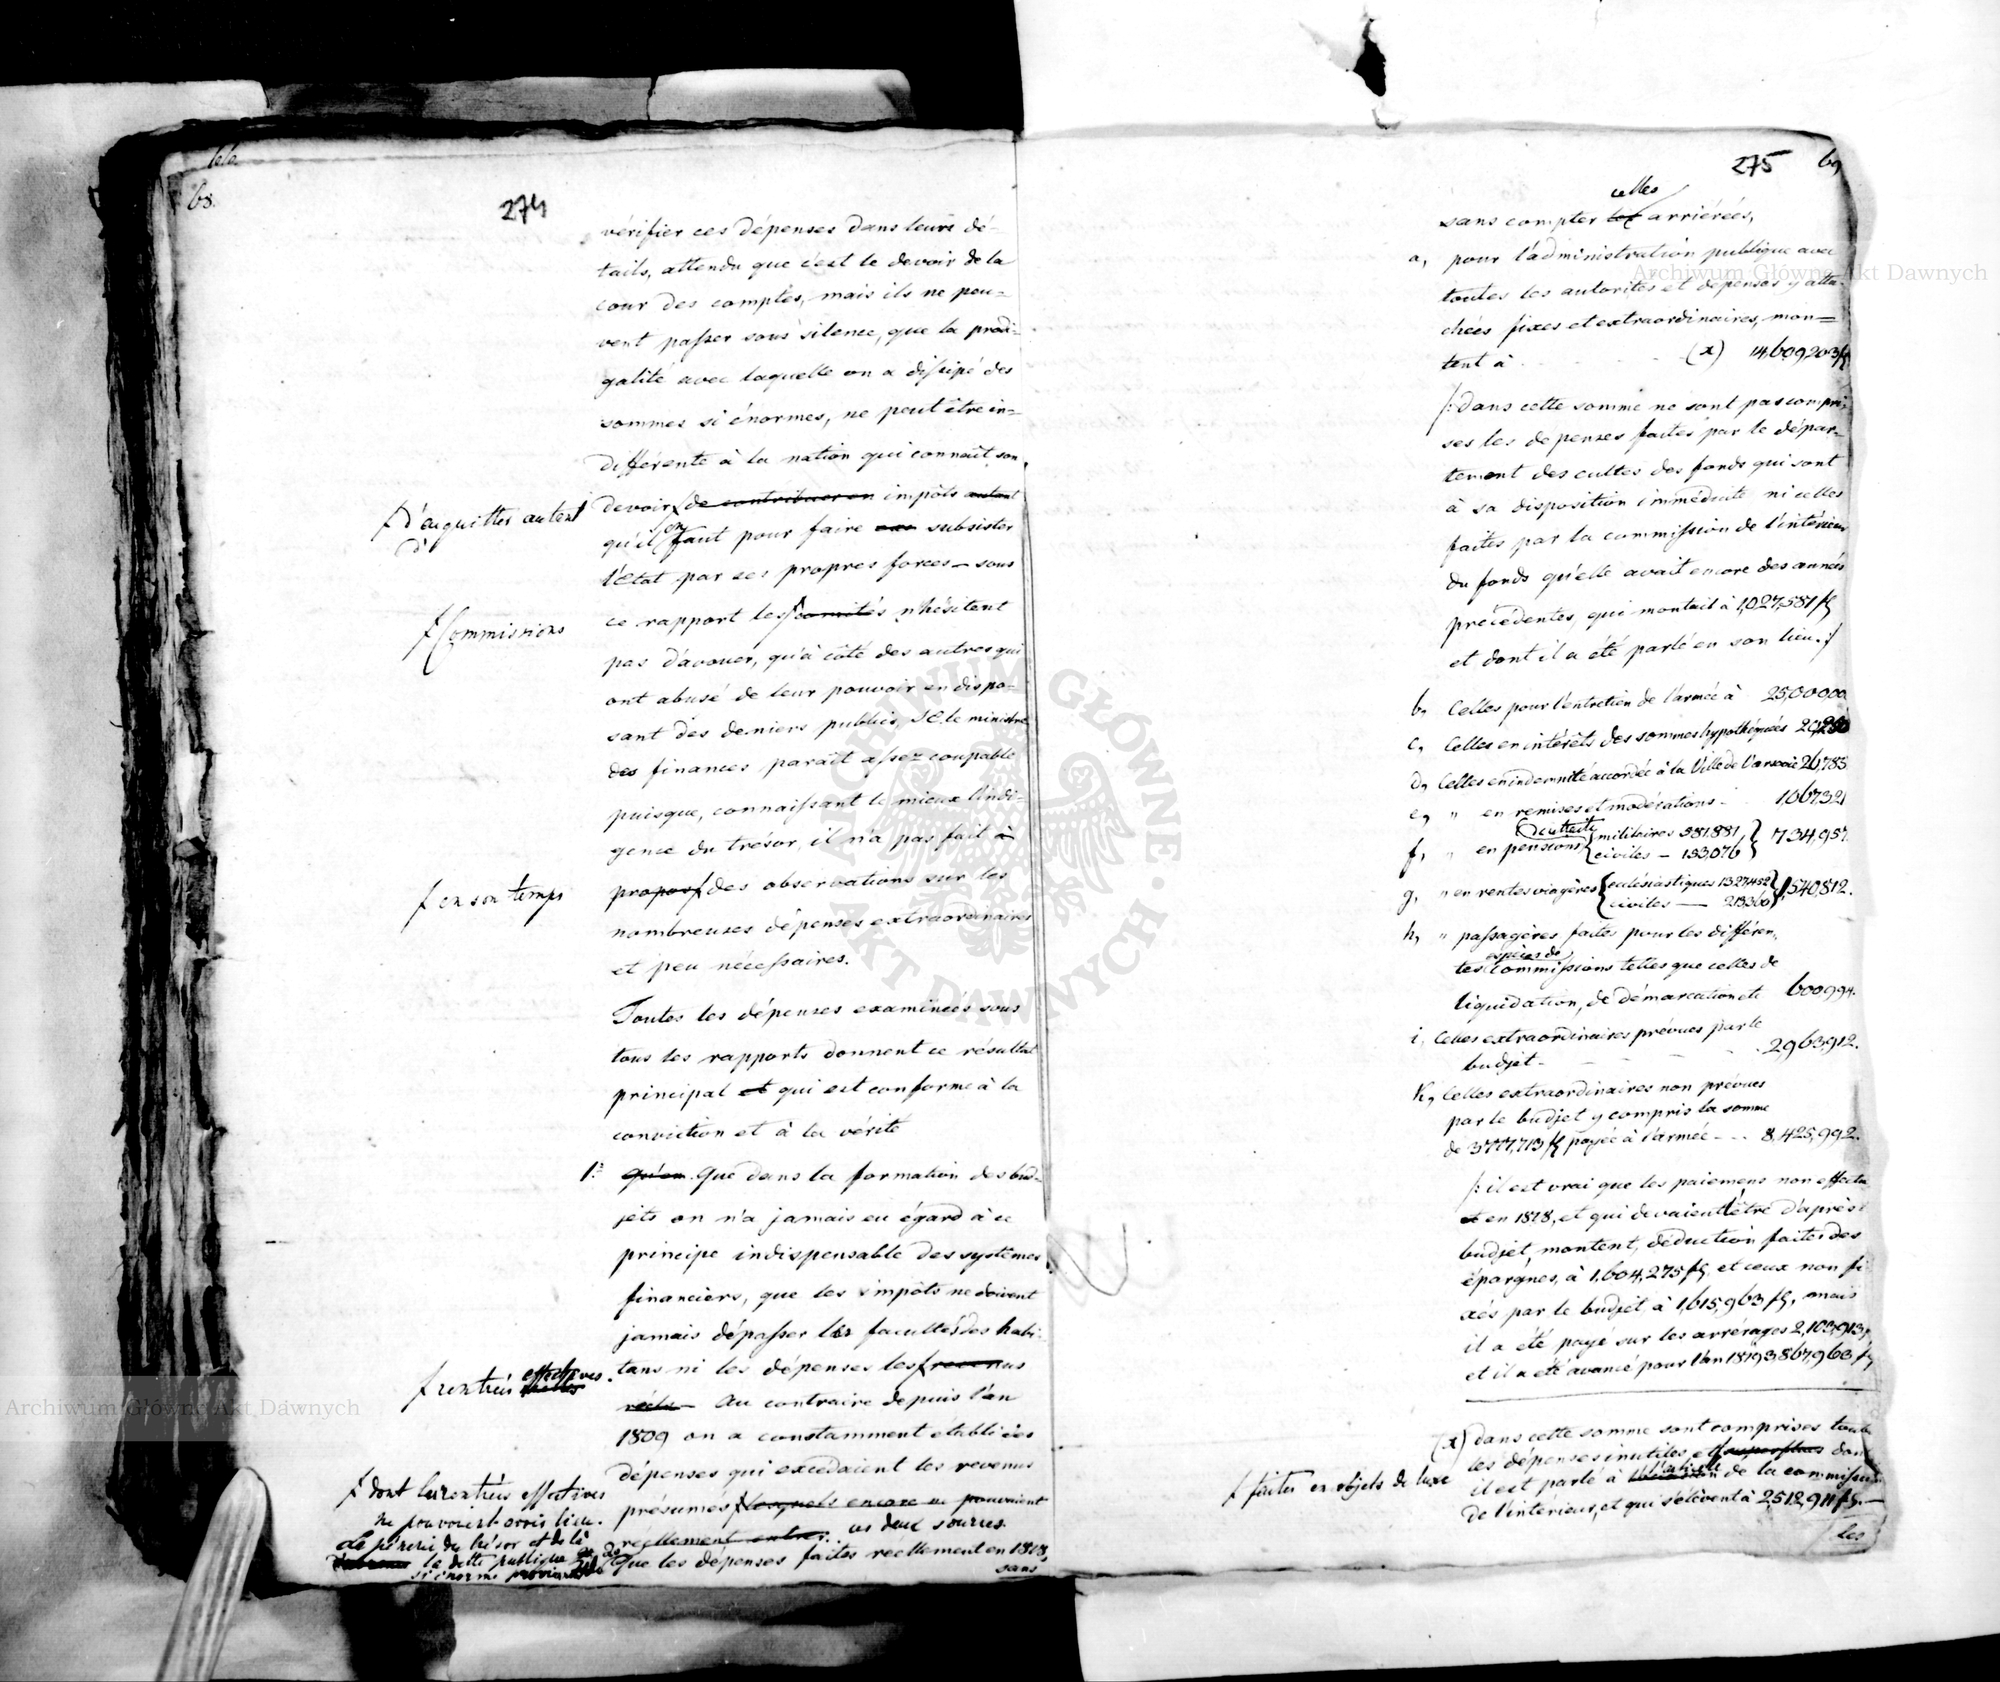 68.
274
vérifier ces dépenses dans leurs dé-
tails, attendu que c'est le devoir de la
cour des comptes, mais ils ne peu-
vent passer sous silence, que la prodi-
galité avec laquelle on a dissipé des
sommes si énormes, ne peut être in-
différente à la nation qui connait son
devoir de contribuer en impôts autant
d'acquitter autant
d'
qu'il en faut pour faire subsister
l'Etat par ses propres forces — sous
ce rapport les comités n'hésitent
Commissions
pas d'avouer, qu'à côté des autres qui
ont abusé de leur pouvoir en dispo-
sant des deniers publics, le ministre
des finances parait assez coupable
puisque, connaissant le mieux l'indi-
gence du trésor, il n'a pas fait à
propos des observations sur les
en son temps
nombreuses dépenses extraordinaires
et peu nécessaires.
Toutes les dépenses examinées sous
tous les rapports donnent ce résultat
principal et qui est conforme à la
conviction et à la vérité
1° qu'on Que dans la formation des bud-
jets on n'a jamais eu égard à ce
principe indispensable des systèmes
financiers, que les impôts ne doivent
jamais dépasser les facultés des habi-
tans ni les dépenses les revenus
rentrées effectives
réels — Au contraire depuis l'an
1809 on a constamment établi des
dépenses qui excédaient les revenus
présumés lesquels encore ne pouvaient
réellement entrer. ces deux sources
dont les rentrées effectives
ne pouvaient avoir lieu.
du trésor et de là
la dette publique
si énorme
2° Que les dépenses faites réellement en 1818,
sans
275
69
celles
sans compter les arriérées,
a, pour l'administration publique avec
toutes les autorités et dépenses y atta-
chées fixes et extraordinaires, mon=
tent à (x) 14,609,203 fl
/: Dans cette somme ne sont pas compri-
ses les dépenses faites par le dépar-
tement des cultes des fonds qui sont
à sa disposition immédiate ni celles
faites par la commission de l'intérieur
du fonds qu'elle avait encore des années
précédentes, qui montait à 1,027,581 fl
et dont il a été parlé en son lieu. :/
b, Celles pour l'entretien de l'armée à
c, Celles en intérêts des sommes hypothéquées
d, Celles en indemnité accordée à la Ville de Varsovie 26,785
e, " en remises et modérations - 1,067,321
f, " en pensions { militaires 581,881, civiles — 153,076 } 734,957.
g, " en rentes viagères { ecclésiastiques 1,327,452 civiles — 213,360 } 1,540,812.
h, " passagères faites pour les différen-
espèces de
tes commissions telles que celles de
liquidation, de démarcation etc 600,994.
i, Celles extraordinaires prévues par le
budjet - 2,963,912.
k, Celles extraordinaires non prévues
par le budjet y compris la somme
de 3,777,713 fl payée à l'armée - - - 8,425,992.
/: il est vrai que les paiemens non effectu
és en 1818, et qui devaient l'être d'après l
budjet, montent, déduction faite des
épargnes, à 1,604,275 fl, et ceux non fi
xés par le budjet à 1,615,963 fl, mais
il a été payé sur les arrérages 2,103,913,
et il a été avancé pour l'an 1819 3,867,963 fl
(x) Dans cette somme sont comprises toutes
les dépenses inutiles et superflues dont
faites en objets de luxe
il est parlé à l'article de la commission
de l'intérieur, et qui s'élèvent à 2,512,911 fl. —
les
Archiwum Główne Akt Dawnych
Archiwum Główne Akt Dawnych
ARCHIWUM GŁÓWNE AKT DAWNYCH